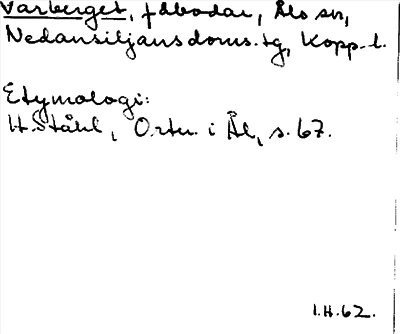 Varberget, fäbodar, Åls sn,
Nedansiljans doms.tg, Kopp. l.
Etymologi:
H. Ståhl, Ortn. i Ål, s. 67.
I.H.62.